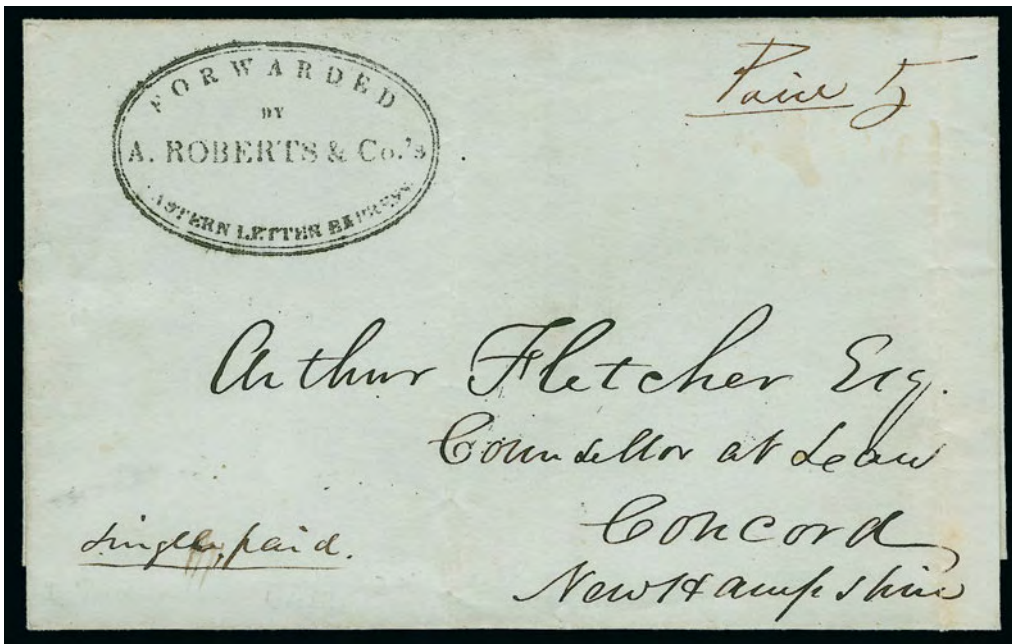 FORWARDED
BY
A. ROBERTS & Co.'s
ASTERN LETTER EXPRESS
Paid 5
Arthur Fletcher Esq.
Counsellor at Law
Concord
New Hampshire
Single, paid.